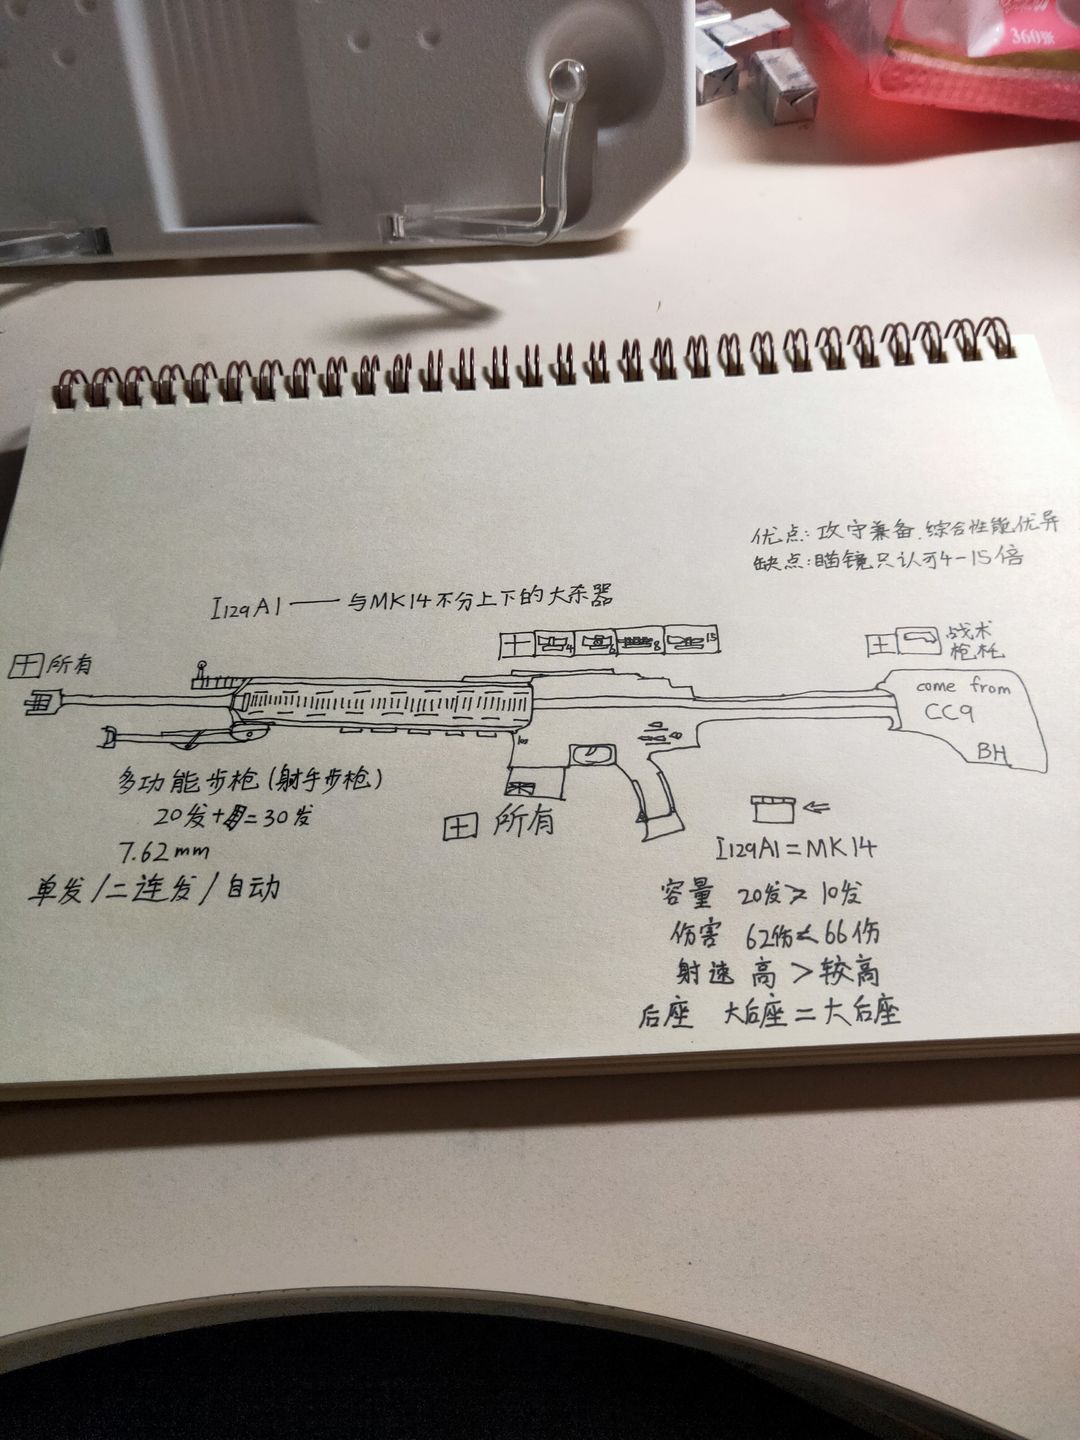 360%
优点:攻守兼备,综合性能优异
缺点:瞄镜只认可4-15倍
I129A1——与MK14不分上下的大杀器
所有
4 6 8 15
战术
枪托
come from
CC9
BH
多功能步枪(射手步枪)
20发+ =30发
7.62mm
单发/二连发/自动
所有
I129A1=MK14
容量 20发>10发
伤害 62伤<66伤
射速 高>较高
后座 大后座=大后座